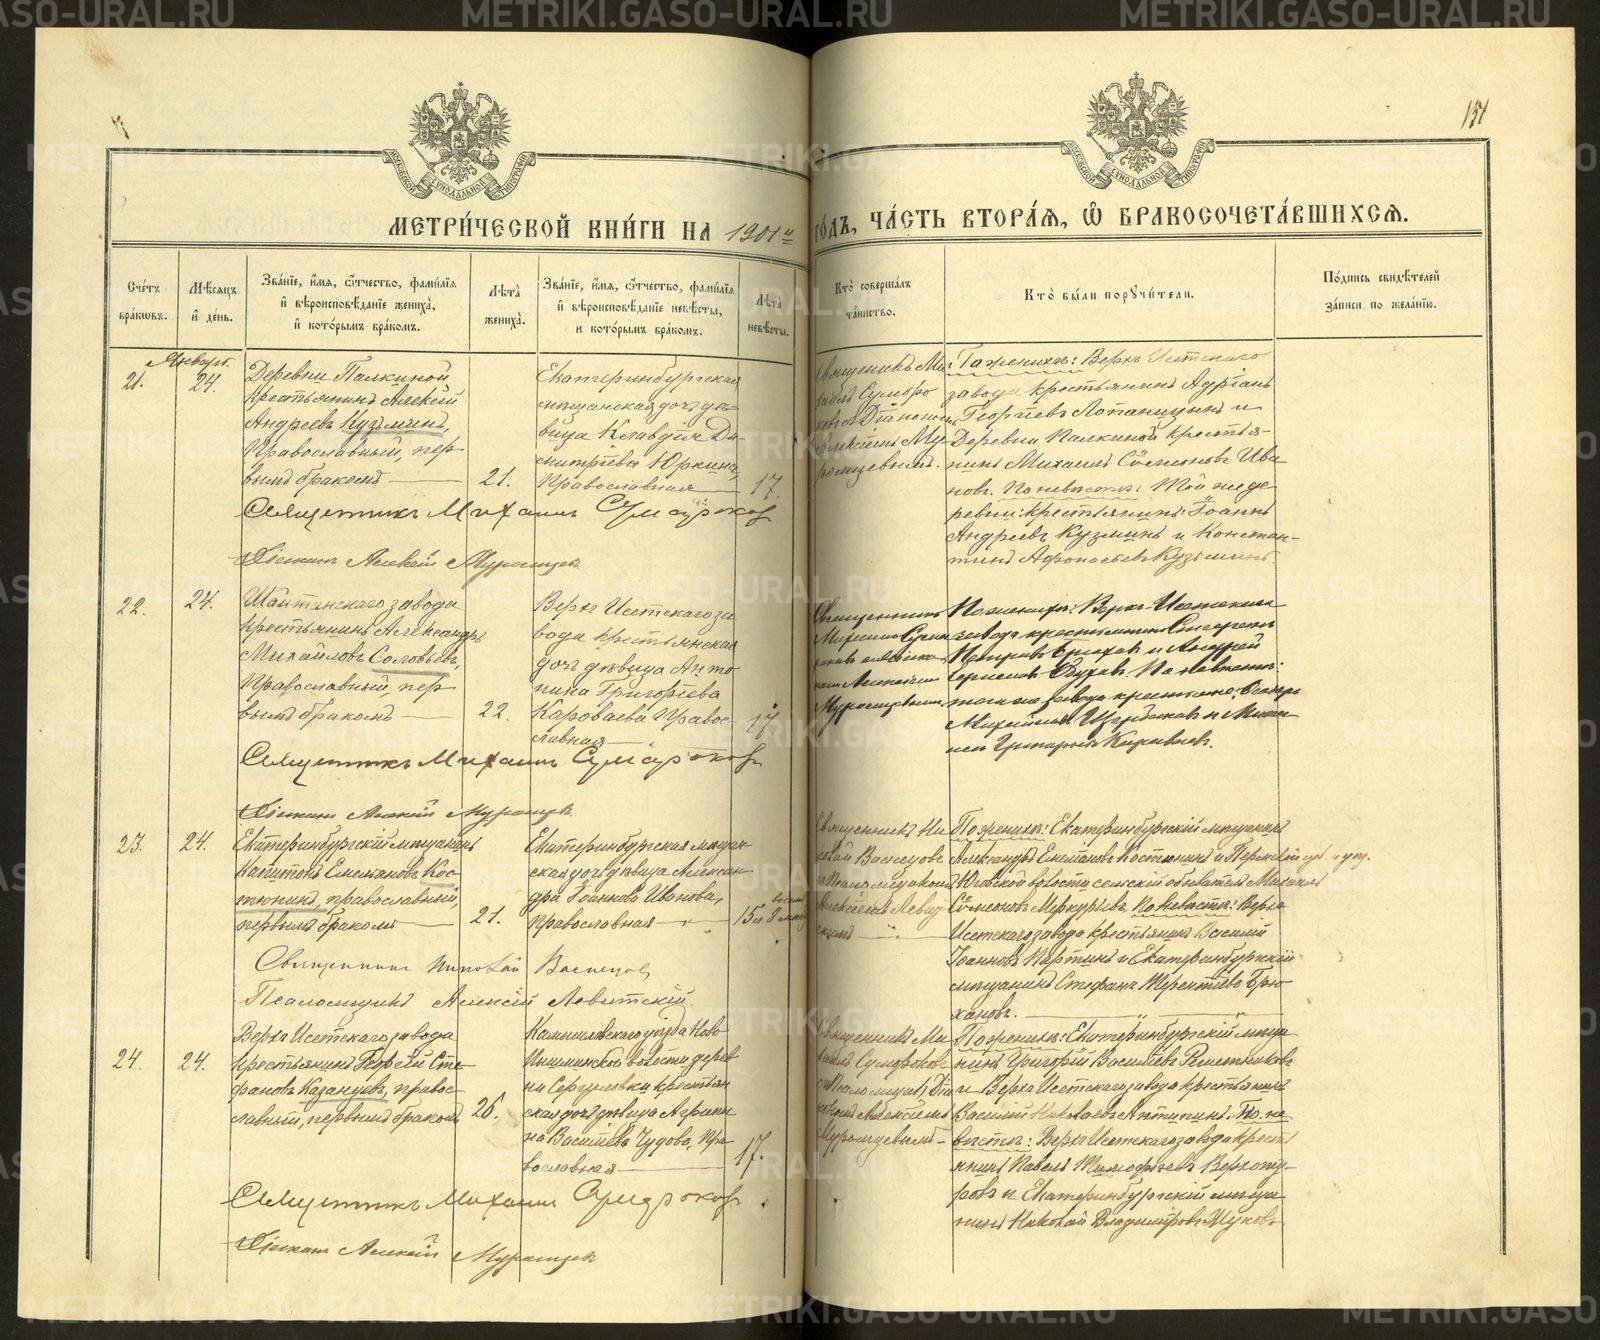 151
МЕТРИ́ЧЕСКОЙ КНИ́ГИ НА 1901й
ГО́ДЪ, ЧА́СТЬ ВТОРА́Я, Ѡ БРАКОСОЧЕТА́ВШИХСЯ.
Сче́тъ бра́ковъ.
Мѣ́сяцъ и҆ де́нь.
Зва́нїе, и҆́мя, ѻ҆́тчество, фами́лїя
и҆ вѣроисповѣ́данїе жениха́,
и҆ кото́рымъ бра́комъ.
Лѣ́та жениха́.
Зва́нїе, и҆́мя, ѻ҆́тчество, фами́лїя
и҆ вѣроисповѣ́данїе невѣ́сты,
и҆ кото́рымъ бра́комъ.
Лѣ́та невѣ́сты.
Кто̀ соверша́лъ
та́инство.
Кто̀ бы́ли поручи́тели.
По́дпись свидѣ́телей
за́писи по жела́нїю.
Январь.
21.
24.
Деревни Палкиной
крестьянинъ Алексѣй
Андреевъ Кузьминъ,
Православный, пер-
вымъ бракомъ
21.
Екатеринбургская
мѣщанская дочь дѣ-
вица Клавдія Ди-
митріева Юркина,
Православная
17.
Священникъ Ми-
хаилъ Сумароковъ
съ Діакономъ
Алексѣемъ Му-
ромцевымъ.
По женихѣ: Верхъ Исетскаго
завода крестьянинъ Адріанъ
Георгіевъ Лопаницынъ и
Деревни Палкиной крестья-
нинъ Михаилъ Сѷмеоновъ Ива-
новъ. По невѣстѣ: Той же де-
ревни: крестьянинъ: Іоаннъ
Андреевъ Кузминъ и Констан-
тинъ Афонасьевъ Кузьминъ.
Священникъ Михаилъ Сумароковъ
Діаконъ Алексѣй Муромцевъ
22.
24.
Шайтанскаго завода
крестьянинъ Александръ
Михайловъ Соловьевъ,
Православный, пер-
вымъ бракомъ
22.
Верхъ Исетскаго за
вода крестьянская
дочь дѣвица Анто-
нина Григоріева
Короваева Правос-
лавная
17
Священникъ
Михаилъ Сума-
роковъ
Алексѣемъ
Муромцевымъ
По женихѣ: Верхъ-Исетскаго
завода крестьянинъ
Петровъ и Андрей
По невѣстѣ:
того же завода крестьяне:
Михайловъ Щербаковъ и
Григорьевъ Короваевъ.
Священникъ Михаилъ Сумароковъ
Діаконъ Алексѣй Муромцевъ
23.
24.
Екатеринбургскій мѣщанинъ
Капитонъ Емельяновъ Кос-
тюнинъ, православный,
первымъ бракомъ
21.
Екатеринбургская мѣщан-
ская дочь дѣвица Алексан-
дра Іоаннова Иванова,
православная
15 и 8 мѣс
Священникъ Ни-
колай Васнецовъ
съ Псаломщикомъ
Алексѣемъ Левит-
скимъ
По женихѣ: Екатеринбургскій мѣщанинъ
Александръ Емельяновъ Костюнинъ и Пермской губ. и у.
Юговской волости сельскій обыватель Михаилъ
Сѷмеоновъ Меркурьевъ. По невѣстѣ: Верхъ
Исетскаго завода крестьянинъ Василій
Іоанновъ Партинъ и Екатеринбургскій
мѣщанинъ Стефанъ Терентіевъ Брю-
хановъ.
Священникъ Николай Васнецовъ
Псаломщикъ Алексѣй Левитскій.
24.
24.
Верхъ Исетскаго завода
крестьянинъ Георгій Сте-
фановъ Казанцевъ, правос-
лавный, первымъ бракомъ
26.
Камышловскаго уѣзда Ново-
Пышминской волости дерев
ни Сергуловки крестьян
ская дочь дѣвица Агрипи
на Васильева Чудова, Пра-
вославная
17.
Священникъ Ми-
хаилъ Сумароковъ
съ Псаломщ. Діа-
кономъ Алексѣемъ
Муромцевымъ
По женихѣ: Екатеринбургскій мѣща-
нинъ Григорій Васильевъ Решетниковъ
и Верхъ Исетскаго завода крестьянинъ
Василій Николаевъ Антипинъ. По не-
вѣстѣ: Верхъ Исетскаго завода кресть
янинъ Павелъ Тимофеевъ Верхоту-
ровъ и Екатеринбургскій мѣща-
нинъ Николай Владиміровъ Жуковъ
Священникъ Михаилъ Сумароковъ
Діаконъ Алексѣй Муромцевъ
METRIKI.GASO-URAL.RU